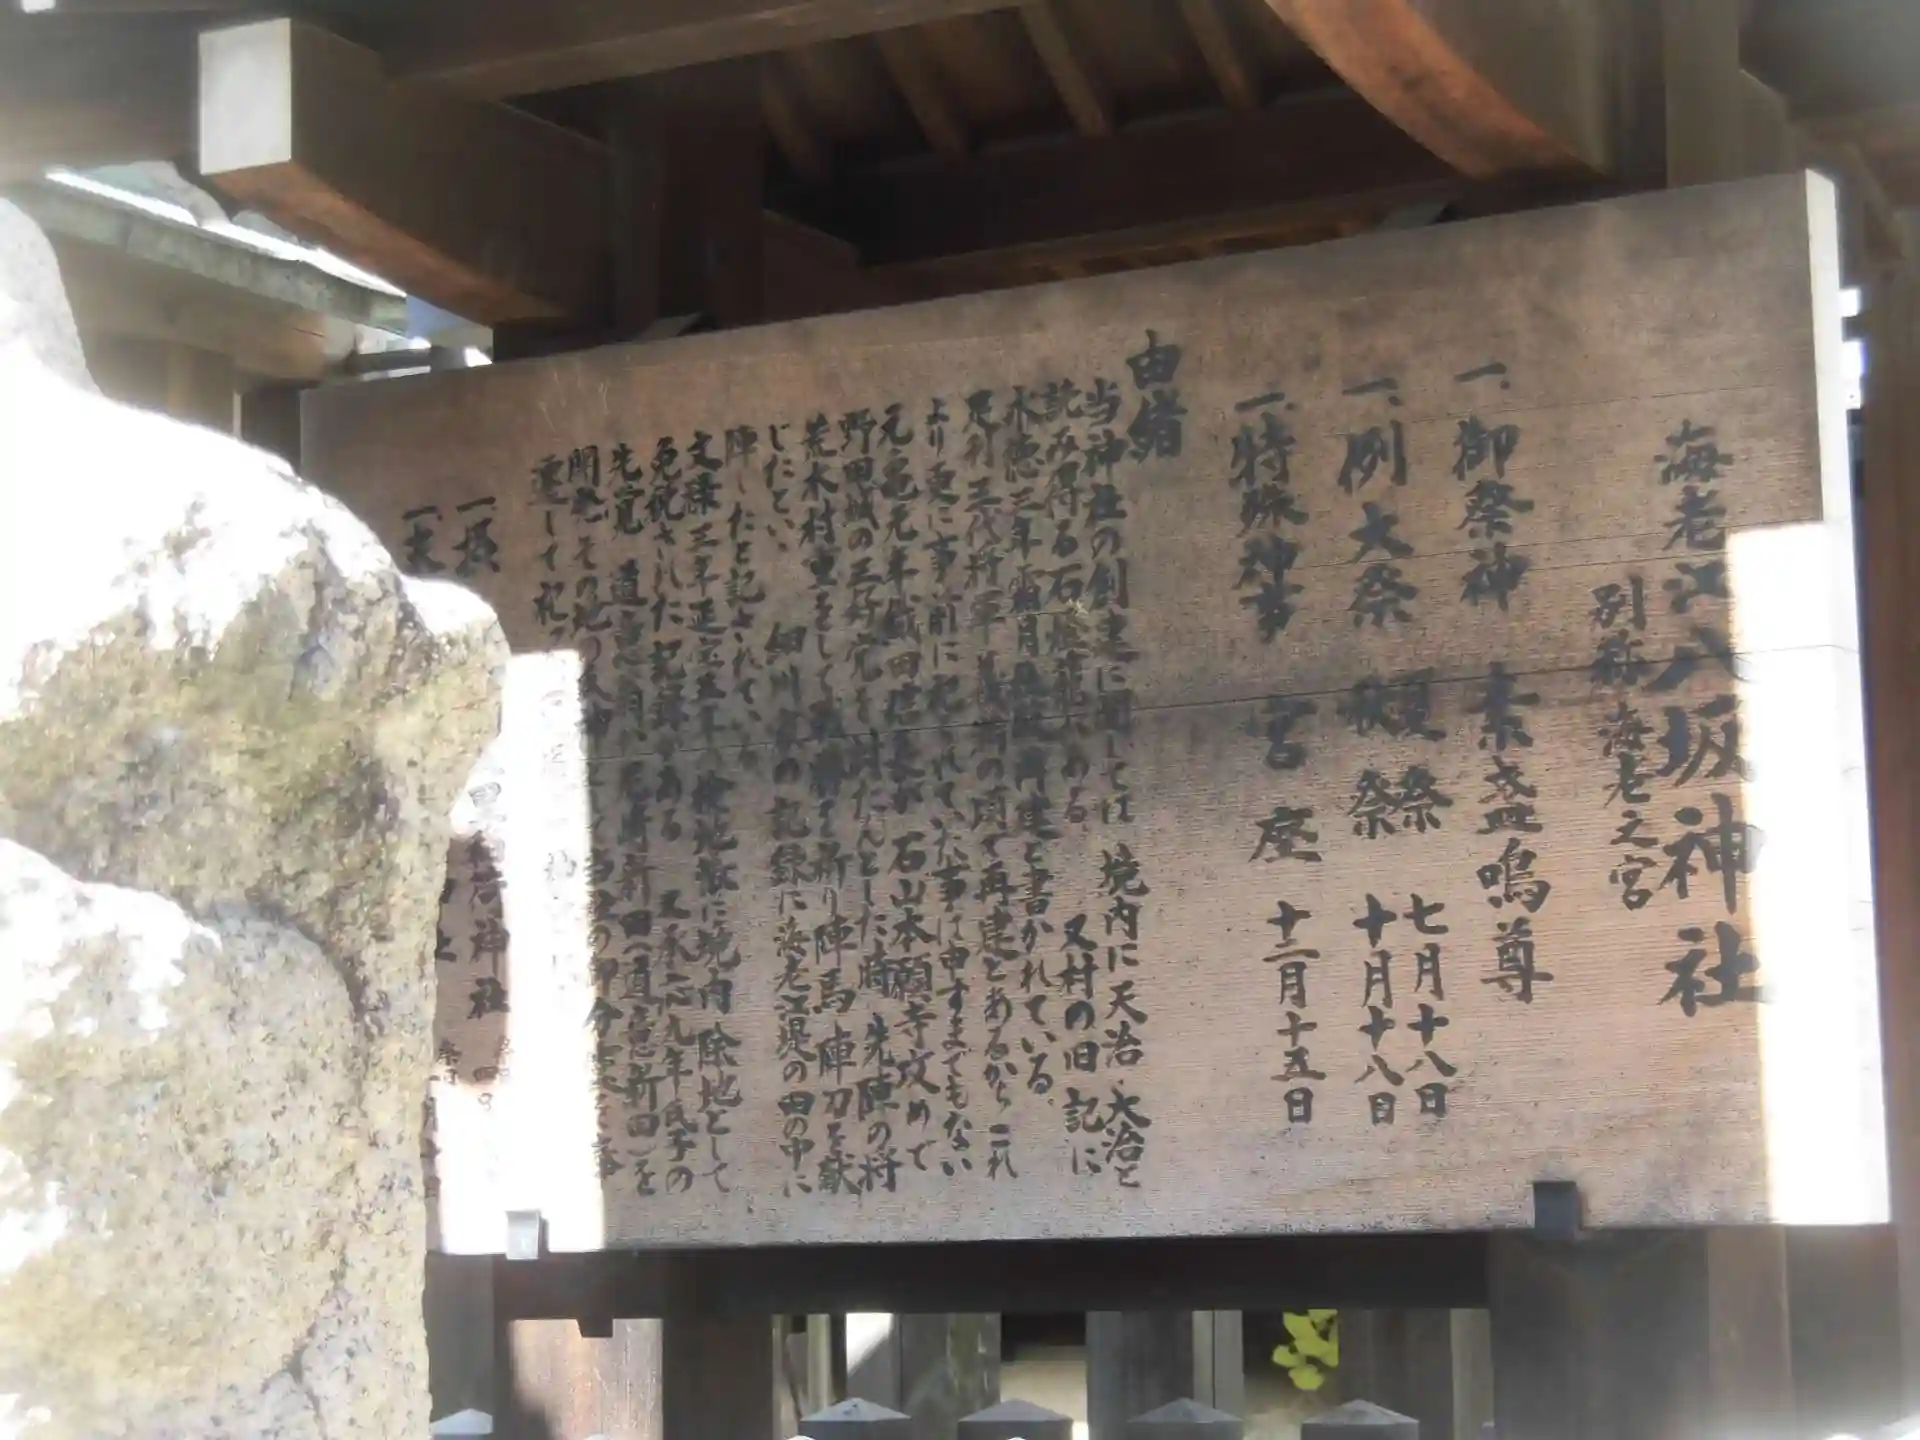 海老江八坂神社
別称 海老之宮
一、御祭神 素盞嗚尊
一、例大祭 夏祭 七月十八日
秋祭 十月十八日
一、特殊神事 宮座 十二月十五日
由緒
当神社の創建に関しては 境内に天治、大治と
読み得る石燈籠がある。又村の旧記に
永徳三年霜月 再建と書かれている。
足利三代将軍義満の頃で再建とあるからこれ
より更に事前に祀られていた事は申すまでもない
元亀元年織田信長が石山本願寺攻めで
野田城の三好党を討たんとした時 先陣の将
荒木村重をして戦勝を祈り陣馬陣刀を献
じたとい、 細川家の記録に海老江堤の田の中に
陣したと記されている
文禄三年延宝五年の検地帳に境内除地として
免税された記録がある 又承応九年氏子の
先覚 道意 尼崎新田(道意新田)を
開発しその地の
一、摂
一、末
稲荷神社